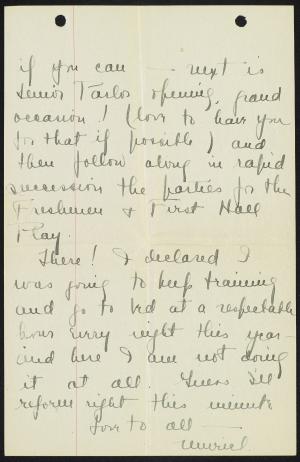 if you can — next is
Senior Parlor opening, grand
occasion! (love to have you
for that if possible) and
then follow along in rapid
succession the parties for the
Freshmen & First Hall
Play.
There! I declared I
was going to keep training
and go to bed at a respectable
hour every night this year —
and here I am not doing
it at all. Guess I'll
reform right this minute
Love to all —
Muriel.